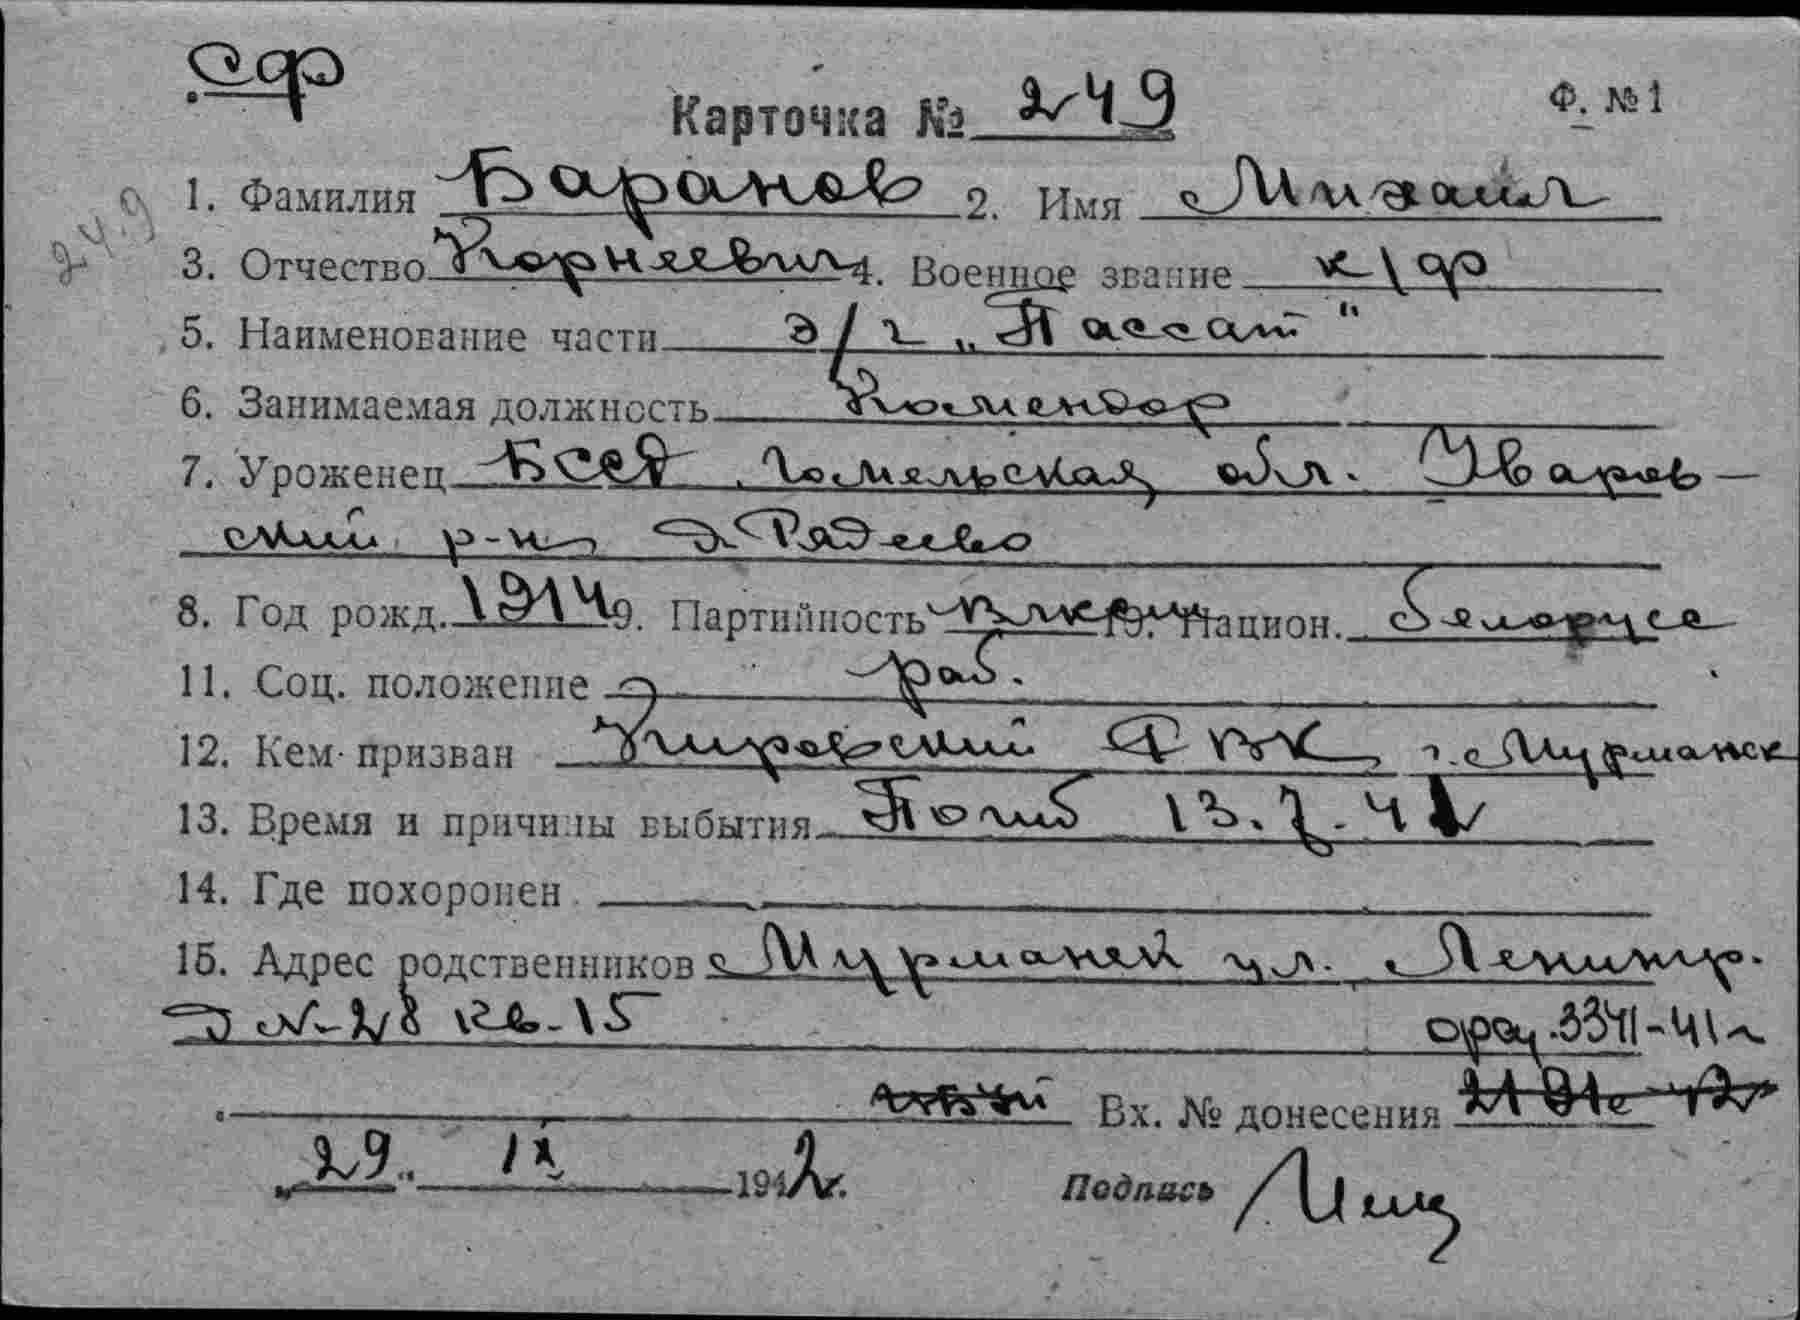 СФ
Карточка № 249 Ф. №1
249
1. Фамилия Баранов 2. Имя Михаил
3. Отчество Корнеевич 4. Военное звание к/ф
5. Наименование части э/т „Пассат"
6. Занимаемая должность Комендор
7. Уроженец БССР, Гомельская обл. Уваров-
ский р-н, д. Рядеево
8. Год рожд. 1914 9. Партийность влксм 10. Национ. белорусс
11. Соц. положение раб.
12. Кем призван Кировский РВК, г. Мурманск
13. Время и причины выбытия Погиб 13.7.41
14. Где похоронен
15. Адрес родственников Мурманск ул. Ленингр.
д №-28 кв.-15 3341-41
Вх. № донесения
„29" IX 1942г. Подпись